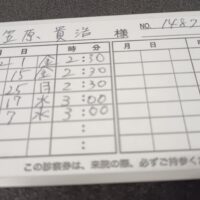 笠原 貴治 様 NO. 1487
月 日 時 分 月 日
2 1 金 2:30
15 金 2:30
25 日 2:30
17 水 3:00
7 水 3:00
この診察券は、来院の際、必ずご持参く